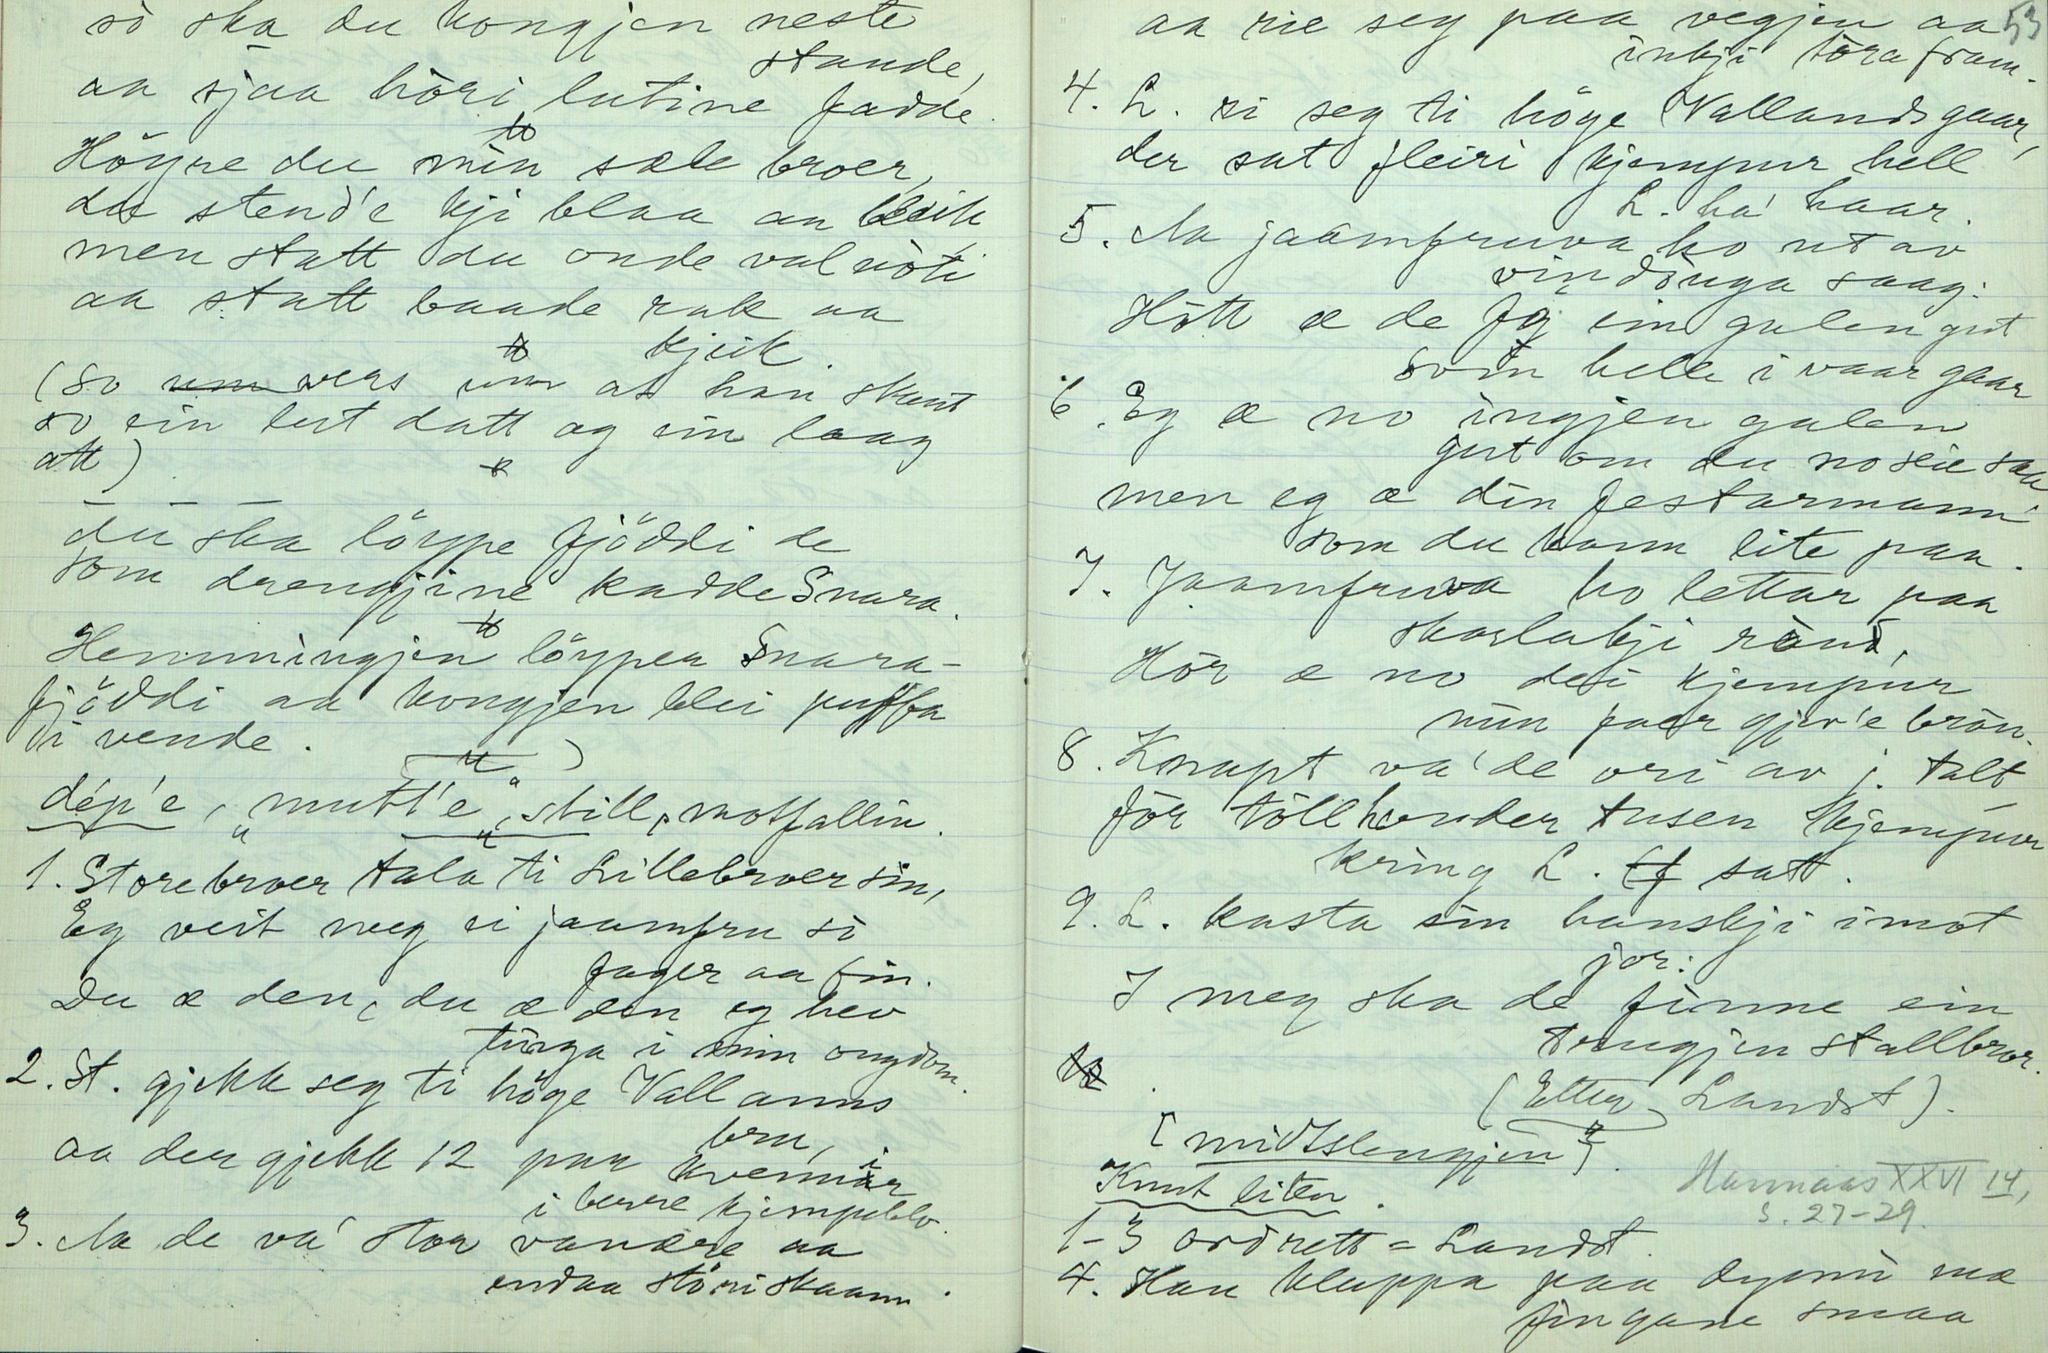 so ska du kongjen neste
stande,
aa sjaa höri lutine fadde.
Höyre du min sæle broer,
du stend'e kji blaa aa bleik
men statt du onde valnöti
aa statt baade rak aa
kjeik.
(so vers um at han skaut
so ein lut datt og ein laag
att)
— — —
du ska löype fjöddi de
som drengjine kadde Snara.
Hemmingjen löyper Snara-
fjöddi aa kongjen blei puffa
i vende.
dép'e, "mutt'e", still, motfallin.
1. Storebroer tala ti Lillebroer sin,
Eg veit meg ei jaamfru so
fager aa fin.
Du æ den, du æ den eg hev
tinga i min ongdom.
2. St. gjekk seg ti höge Vallanns
bru,
aa der gjekk 12 par kvennir
i berre kjempeblo.
3. Aa de va' stor vanære aa
endaa störi skaam.
53
aa rie seg paa vegjen aa
inkji töra fram.
4. L. ri seg ti höge Vallandsgaar,
der sat fleiri kjempur hell
L. ha' haar.
5. Aa jaamfruva ho ut av
vindöuga saag:
Hött æ de fy ein galen gut
som helle i vaar gaar
6. Eg æ no ingjen galen
gut om du no seie saa
men eg æ din festarmann
som du kann lite paa.
7. Jaamfruva ho lettar paa
skarlakji röud,
Hör æ no dei kjempur
min paer gjev'e bröu.
8. Knapt va' de ori av j. talt
för töllhonder tusen kjempur
kring L. satt.
9. L. kasta sin hanskji imot
jor:
I meg ska de finne ein
trengjen stallbror.
(Etter Landst).
[midtslengjen].
Knut liten.
Hannaas XXVI 14,
s. 27-29.
1-3 ordrett = Landst.
4. Han kluppa paa dynni mæ
fingane smaa